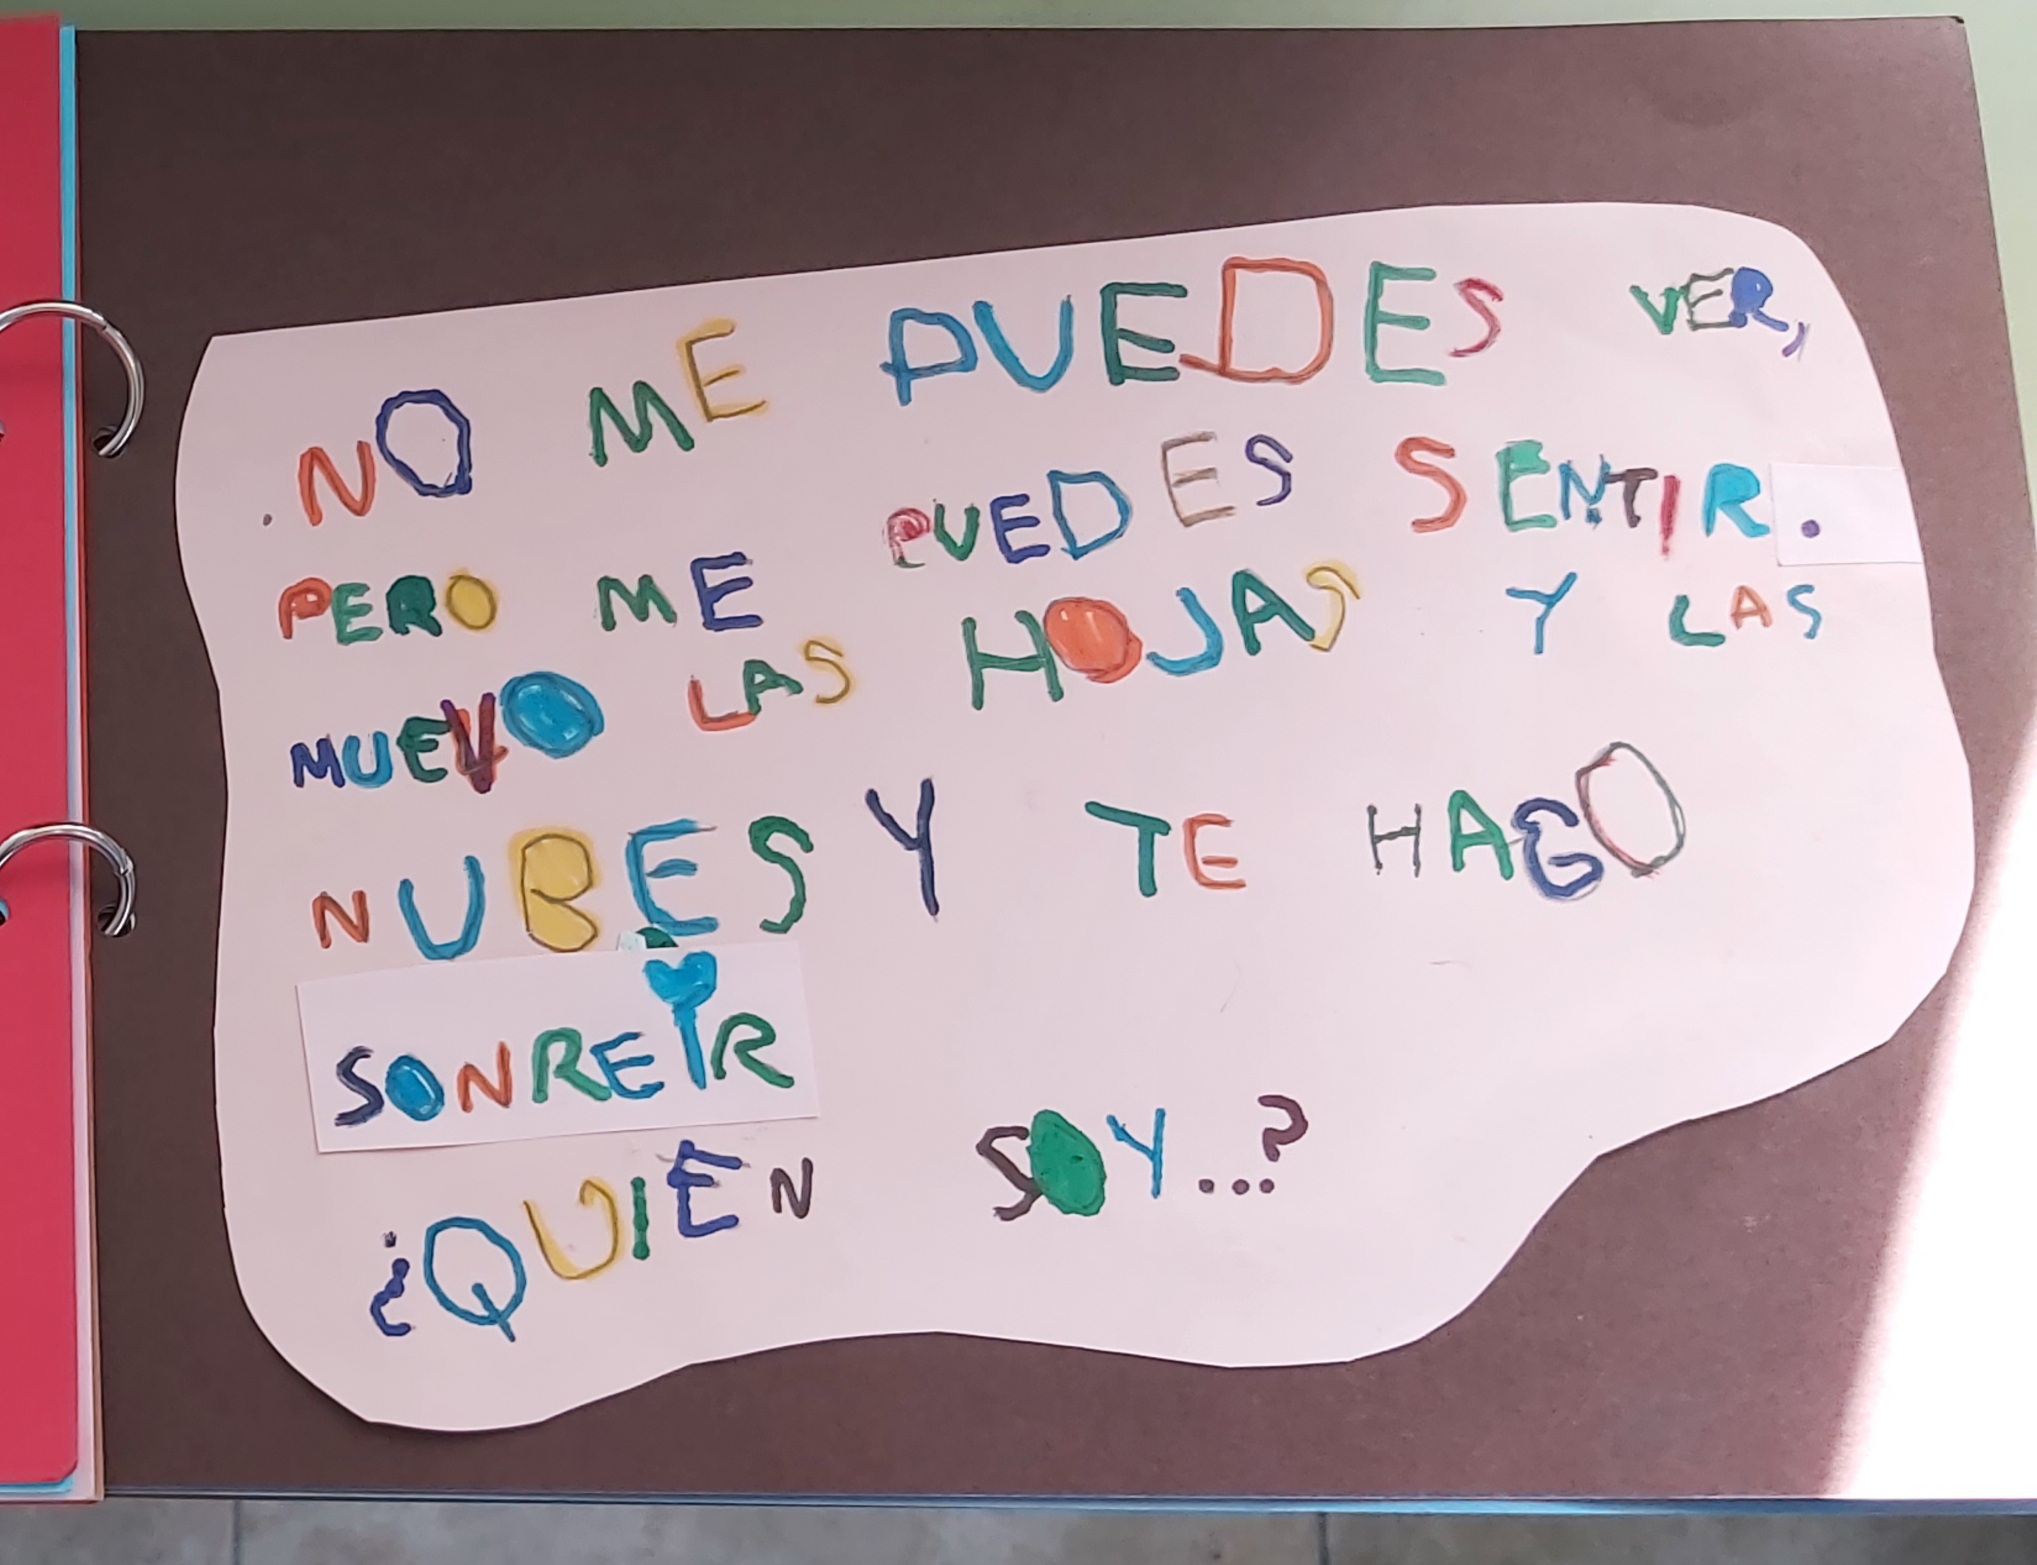 .NO ME PUEDES VER,
PERO ME PUEDES SENTIR.
MUEVO LAS HOJAS Y LAS
NUBES Y TE HAGO
SONREÍR
¿QUIÉN SOY...?